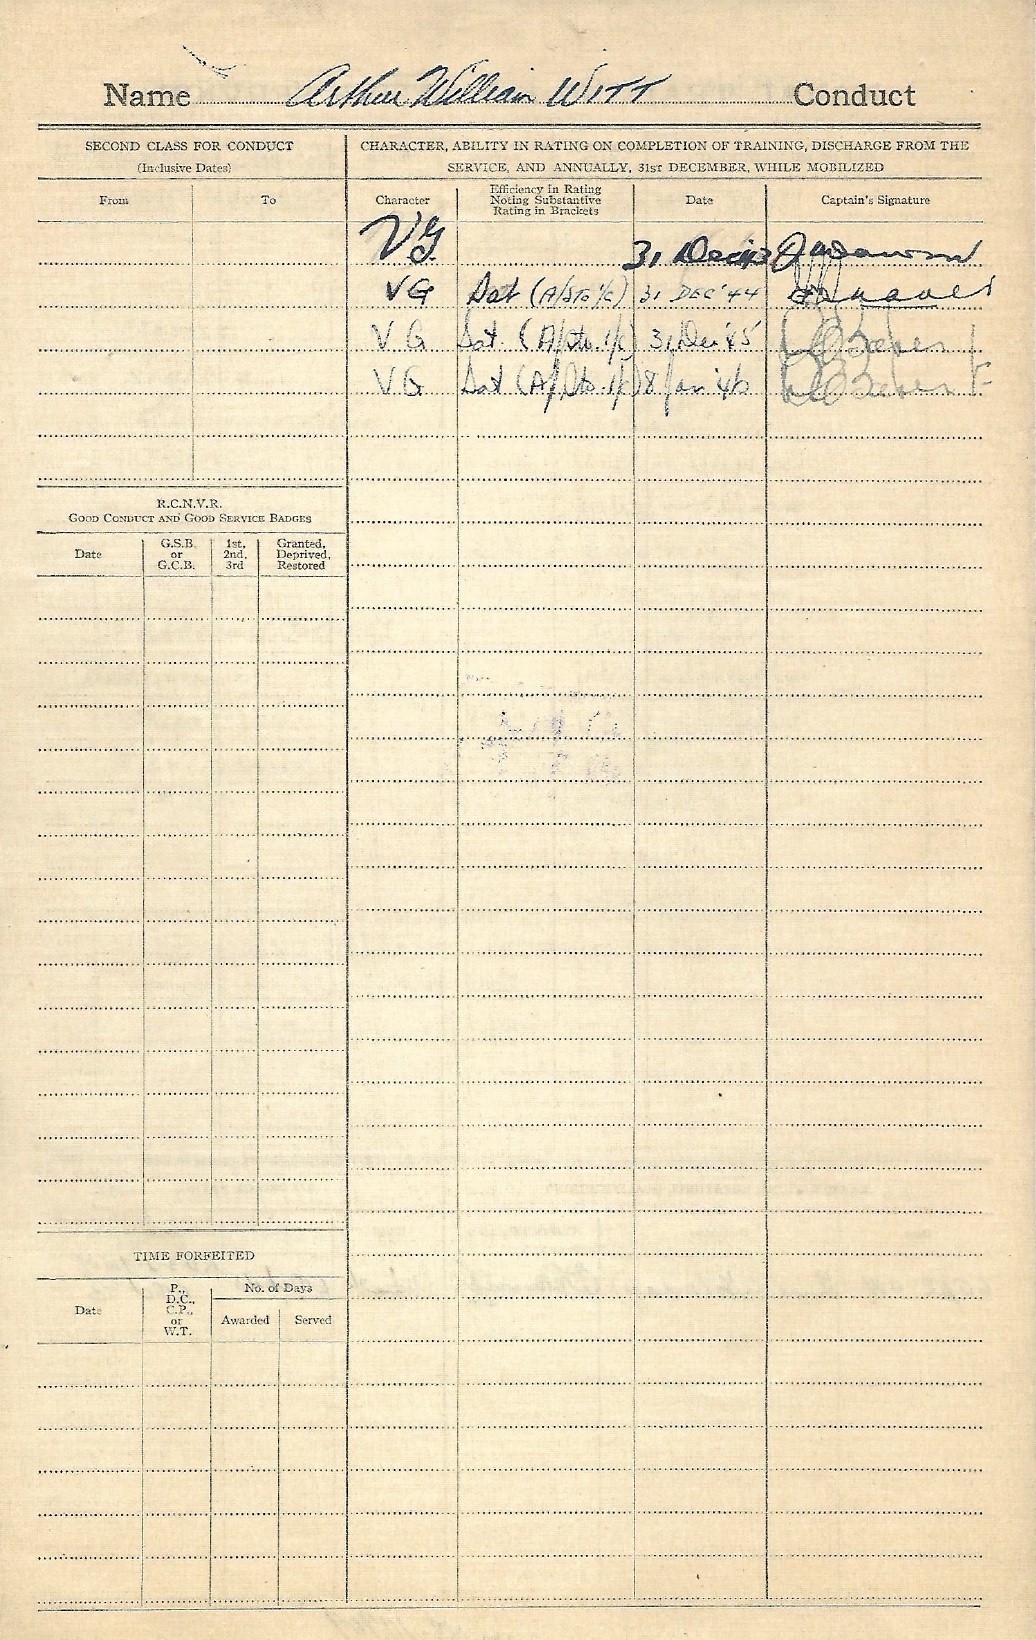 Name Arthur William WITT Conduct
SECOND CLASS FOR CONDUCT
(Inclusive Dates)
From To
CHARACTER, ABILITY IN RATING ON COMPLETION OF TRAINING, DISCHARGE FROM THE
SERVICE, AND ANNUALLY, 31ST DECEMBER, WHILE MOBILIZED
Character
Efficiency in Rating
Noting Substantive
Rating in Brackets
Date
Captain's Signature
VG 31 Dec 43
VG Sat (A/Sto 1/c) 31 DEC '44
VG Sat. (A/Sto. 1/c) 31 Dec '45
VG Sat (A/Sto. 1/c) 8 Jan '46
R.C.N.V.R.
GOOD CONDUCT AND GOOD SERVICE BADGES
Date
G.S.B.
or
G.C.B.
1st,
2nd,
3rd
Granted,
Deprived,
Restored
TIME FORFEITED
Date
P.,
D.C.,
C.P.,
or
W.T.
No. of Days
Awarded Served